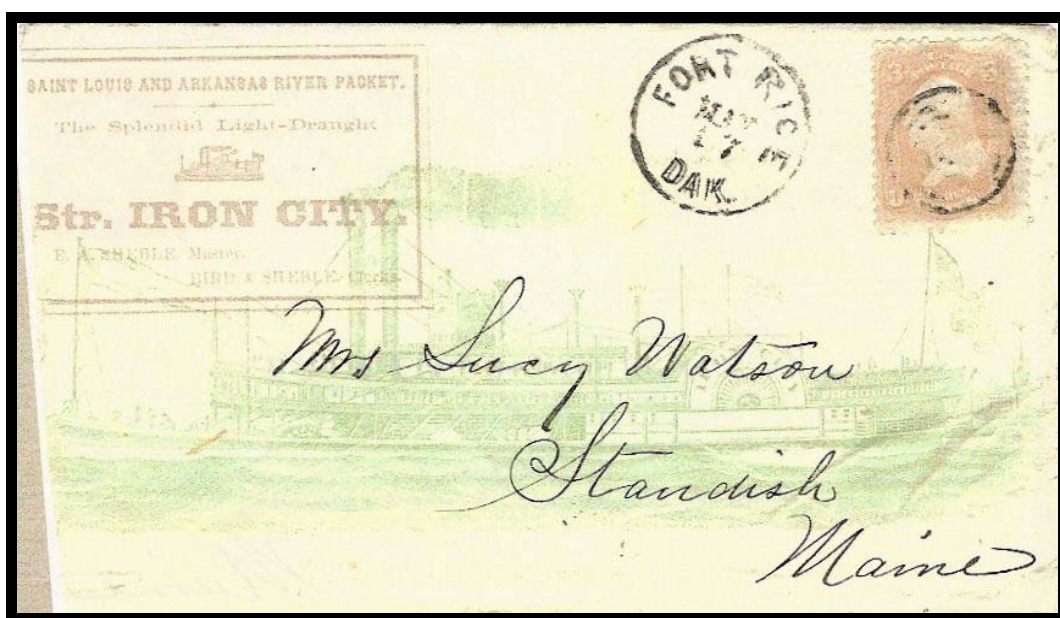 SAINT LOUIS AND ARKANSAS RIVER PACKET.
The Splendid Light-Draught
Str. IRON CITY.
SHEBLE, Master.
BIRD & SHEBLE, Clerks.
FORT RICE
DAK.
3
Mrs Lucy Watson
Standish
Maine